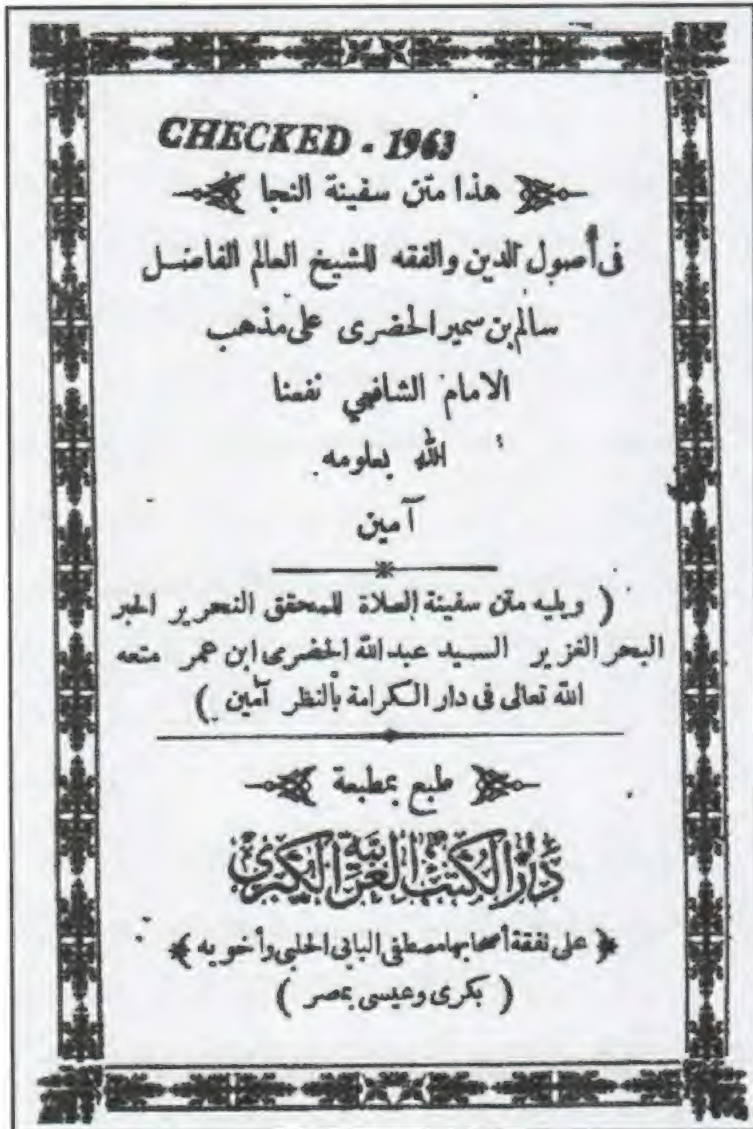 CHECKED - 1963
هذا متن سفينة النجا
فى أصول الدين والفقه للشيخ العالم الفاضل
سالم بن سمير الحضرى على مذهب
الامام الشافعي نفعنا
الله بعلومه
آمين
( ويليه متن سفينة الصلاة للمحقق النحرير الحبر
البحر الغزير السيد عبد الله الحضرى ابن عمر متعه
الله تعالى فى دار الكرامة بالنظر آمين )
طبع بمطبعة
دار الكتب العربية الكبرى
على نفقة أصحابها مصطفى البابى الحلبى وأخويه
( بكرى وعيسى بمصر )